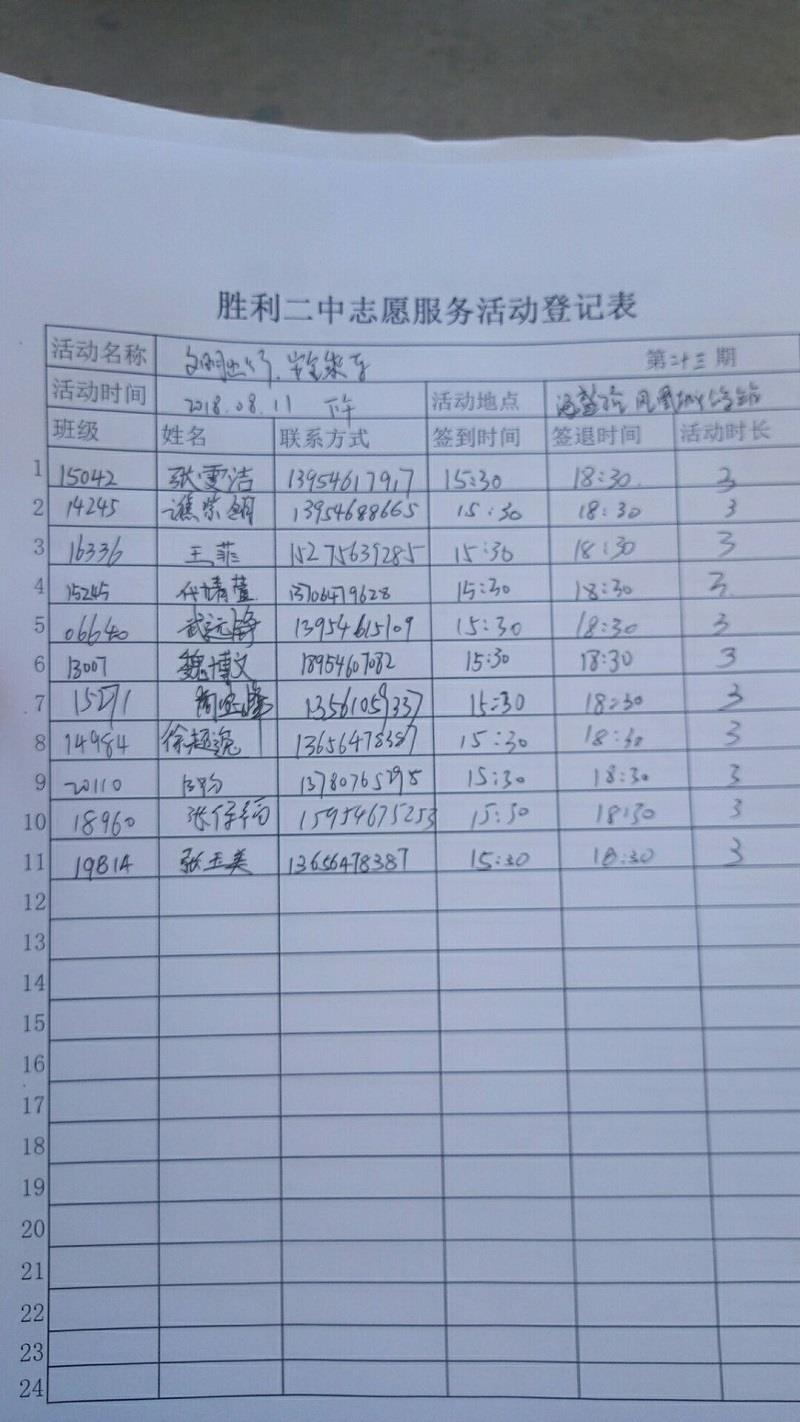 胜利二中志愿服务活动登记表
活动名称 文明 第二十三期
活动时间 2018.08.11 下午 活动地点 凤凰城
班级 姓名 联系方式 签到时间 签退时间 活动时长
1 15042 张雪洁 13954617917 15:30 18:30 3
2 14245 谯崇 13954688665 15:30 18:30 3
3 16336 王菲 15275639285 15:30 18:30 3
4 15245 代婧萱 13706479628 15:30 18:30 3
5 06640 武远 13954615109 15:30 18:30 3
6 13007 魏博文 18954607082 15:30 18:30 3
7 15271 周 13561059337 15:30 18:30 3
8 14984 徐超逸 13656478387 15:30 18:30 3
9 20110 13780765295 15:30 18:30 3
10 18960 张 15954675253 15:30 18:30 3
11 19814 张玉美 13656478387 15:30 18:30 3
12
13
14
15
16
17
18
19
20
21
22
23
24